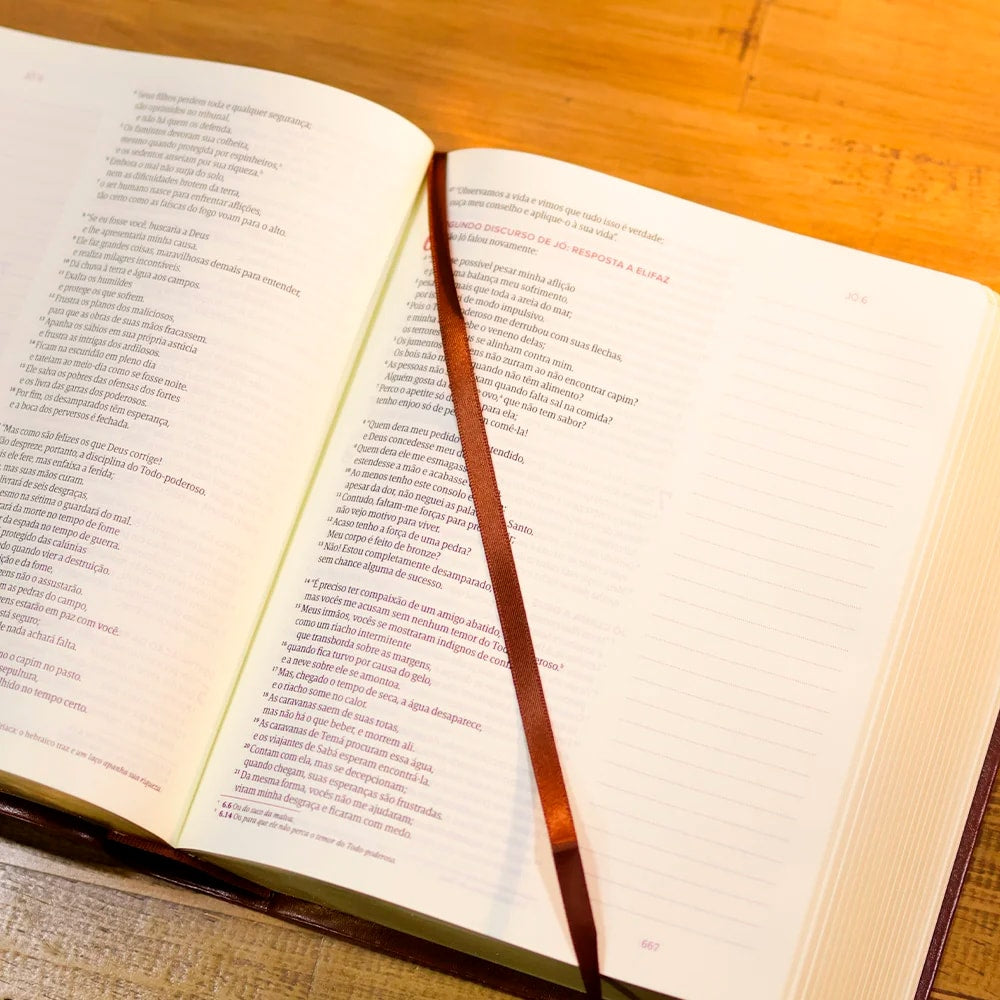 JÓ 5
⁴ Seus filhos perdem toda e qualquer segurança;
são oprimidos no tribunal,
e não há quem os defenda.
⁵ Os famintos devoram sua colheita,
mesmo quando protegida por espinheiros,ᵃ
e os sedentos anseiam por sua riqueza.ᵇ
⁶ Embora o mal não surja do solo,
nem as dificuldades brotem da terra,
⁷ o ser humano nasce para enfrentar aflições,
tão certo como as faíscas do fogo voam para o alto.
⁸ “Se eu fosse você, buscaria a Deus
e lhe apresentaria minha causa.
⁹ Ele faz grandes coisas, maravilhosas demais para entender,
e realiza milagres incontáveis.
¹⁰ Dá chuva à terra e água aos campos.
¹¹ Exalta os humildes
e protege os que sofrem.
¹² Frustra os planos dos maliciosos,
para que as obras de suas mãos fracassem.
¹³ Apanha os sábios em sua própria astúcia
e frustra as intrigas dos ardilosos.
¹⁴ Ficam na escuridão em pleno dia
e tateiam ao meio-dia como se fosse noite.
¹⁵ Ele salva os pobres das ofensas dos fortes
e os livra das garras dos poderosos.
¹⁶ Por fim, os desamparados têm esperança,
e a boca dos perversos é fechada.
“Mas como são felizes os que Deus corrige!
Não despreze, portanto, a disciplina do Todo-poderoso.
ele fere, mas enfaixa a ferida;
mas suas mãos curam.
livrará de seis desgraças,
mesmo na sétima o guardará do mal.
da morte no tempo de fome
da espada no tempo de guerra.
protegido das calúnias
quando vier a destruição.
e da fome,
não o assustarão.
as pedras do campo,
estarão em paz com você.
está seguro;
nada achará falta.
o capim no pasto.
sepultura,
no tempo certo.
o hebraico traz e um laço apanha sua riqueza.
“Observamos a vida e vimos que tudo isso é verdade;
ouça meu conselho e aplique-o à sua vida”.
GUNDO DISCURSO DE JÓ: RESPOSTA A ELIFAZ
6 Jó falou novamente:
se possível pesar minha aflição
e na balança meu sofrimento,
mais que toda a areia do mar;
por is de modo impulsivo.
⁴ Pois o poderoso me derrubou com suas flechas,
e minha bebe o veneno delas;
os terrores se alinham contra mim.
⁵ Os jumentos não zurram ao não encontrar capim?
Os bois não quando não têm alimento?
⁶ As pessoas não xam quando falta sal na comida?
Alguém gosta da ovo,ᵃ que não tem sabor?
⁷ Perco o apetite só para ela;
tenho enjoo só de pe em comê-la!
⁸ “Quem dera meu pedido tendido,
e Deus concedesse meu d
⁹ Quem dera ele me esmagas
estendesse a mão e acabasse
¹⁰ Ao menos tenho este consolo e
apesar da dor, não neguei as pala Santo.
¹¹ Contudo, faltam-me forças para pr
não vejo motivo para viver.
¹² Acaso tenho a força de uma pedra?
Meu corpo é feito de bronze?
¹³ Não! Estou completamente desamparado,
sem chance alguma de sucesso.
¹⁴ “É preciso ter compaixão de um amigo abatido,
mas vocês me acusam sem nenhum temor do Tod oderoso.ᵇ
¹⁵ Meus irmãos, vocês se mostraram indignos de con
como um riacho intermitente
que transborda sobre as margens,
¹⁶ quando fica turvo por causa do gelo,
e a neve sobre ele se amontoa.
¹⁷ Mas, chegado o tempo de seca, a água desaparece,
e o riacho some no calor.
¹⁸ As caravanas saem de suas rotas,
mas não há o que beber, e morrem ali.
¹⁹ As caravanas de Temá procuram essa água,
e os viajantes de Sabá esperam encontrá-la.
²⁰ Contam com ela, mas se decepcionam;
quando chegam, suas esperanças são frustradas.
²¹ Da mesma forma, vocês não me ajudaram;
viram minha desgraça e ficaram com medo.
ᵃ 6.6 Ou do suco da malva.
ᵇ 6.14 Ou para que ele não perca o temor do Todo-poderoso.
JÓ 6
667